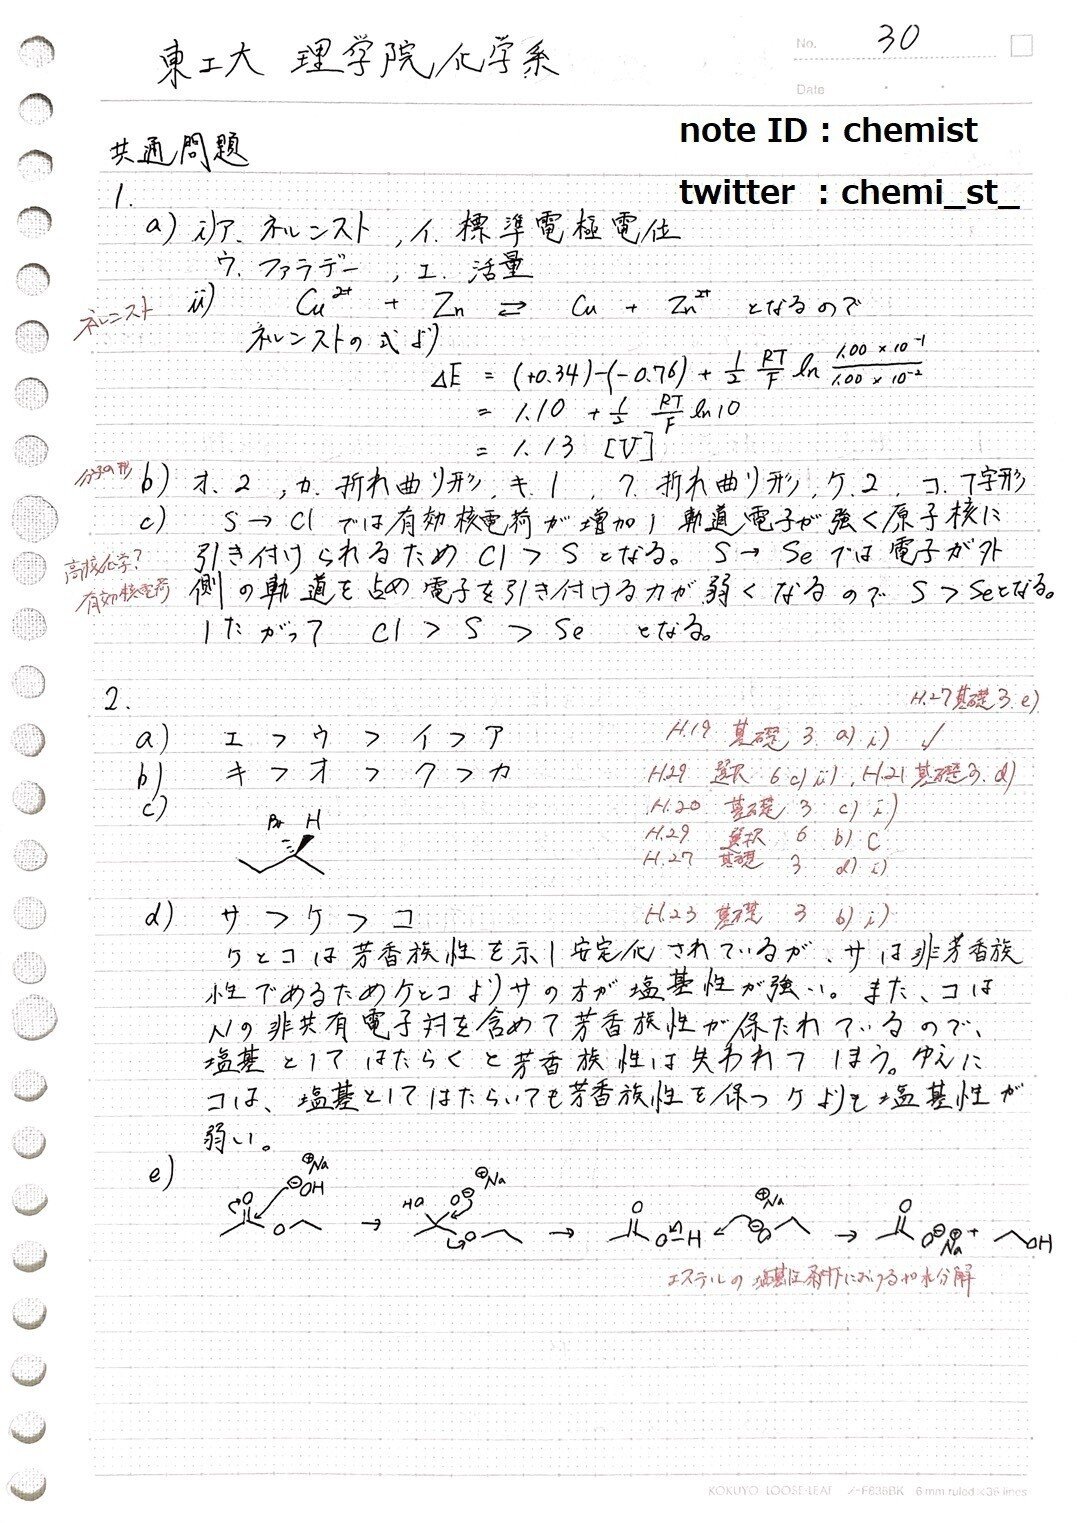 東工大 理学院化学系
No. 30
Date
note ID : chemist
twitter : chemi_st_
共通問題
1.
a) i)ア. ネルンスト , イ. 標準電極電位
ウ. ファラデー , エ. 活量
ネルンスト
ii) Cu²⁺ + Zn ⇄ Cu + Zn²⁺ となるので
ネルンストの式より
ΔE = (+0.34)-(-0.76) + 1/2 RT/F ln (1.00 × 10⁻¹)/(1.00 × 10⁻²)
= 1.10 + 1/2 RT/F ln10
= 1.13 [V]
分子の形
b) オ. 2 , カ. 折れ曲り形 , キ. 1 , ク. 折れ曲り形 , ケ. 2 , コ. T字形
c) S → Cl では有効核電荷が増加し軌道電子が強く原子核に
高校化学?
引き付けられるため Cl > S となる。 S → Se では電子が外
有効核電荷
側の軌道を占め電子を引き付ける力が弱くなるので S > Seとなる。
したがって Cl > S > Se となる。
2.
H.27基礎 3. e)
a) エ > ウ > イ > ア
H.19 基礎 3. a) i) ✓
b) キ > オ > ク > カ
H.29 選択 6 c) ii) , H.21 基礎 3. d)
c)
Br H
H.20 基礎 3 c) i)
H.29 選択 6 b) C
H.27 基礎 3 d) i)
d) サ > ケ > コ
H.23 基礎 3 b) i)
ケとコは芳香族性を示し安定化されているが、サは非芳香族
性であるためケとコよりサの方が塩基性が強い。また、コは
Nの非共有電子対を含めて芳香族性が保たれているので、
塩基としてはたらくと芳香族性は失われてしまう。ゆえに
コは、塩基としてはたらいても芳香族性を保つケよりも塩基性が
弱い。
e)
O ⊖OH ⊕Na O → HO O⊖ ⊕Na O → O O-H ⊕Na ⊖O → O O⊖ ⊕Na + OH
エステルの塩基性条件における加水分解
KOKUYO LOOSE-LEAF ノ-F836BK 6 mm ruled ×36 lines